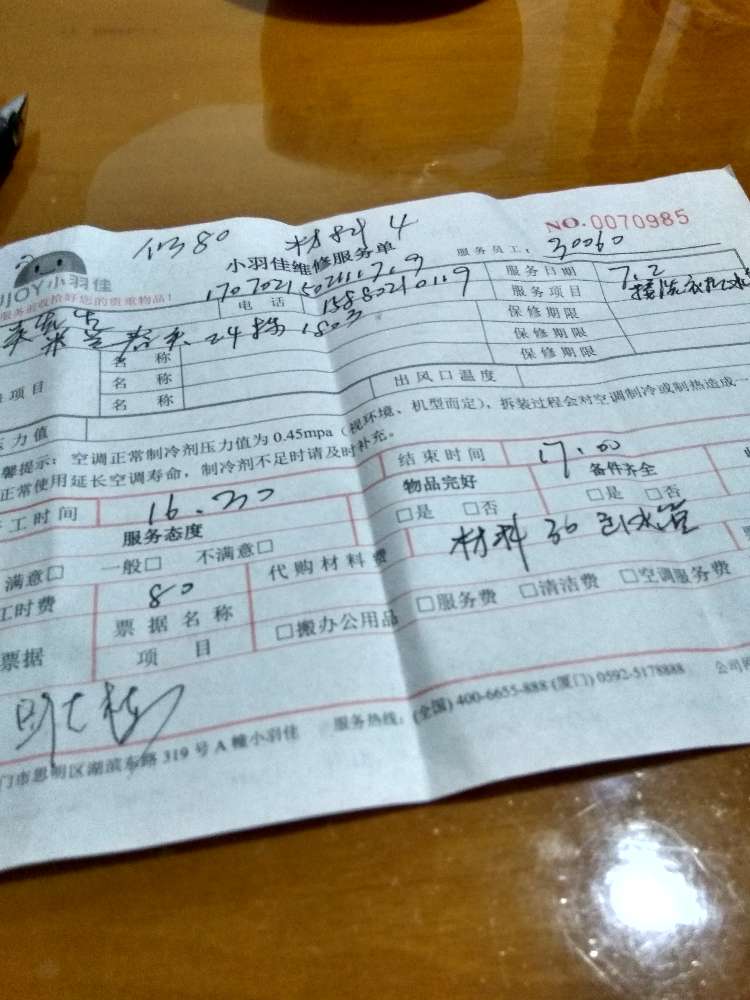 80 材料 4
NO.0070985
JOY小羽佳
小羽佳维修服务单
服务员工: 30060
服务前收拾好您的贵重物品!
电 话 15880210119
服务日期 7.2
24栋 1803
服务项目 接洗衣机水
保修期限
名 称
保修期限
项目 名 称
保修期限
名 称
出风口温度
压力值
馨提示: 空调正常制冷剂压力值为 0.45mpa (视环境、机型而定), 拆装过程会对空调制冷或制热造成一
正常使用延长空调寿命, 制冷剂不足时请及时补充。
工时间 16.30
结束时间 17.00
服务态度
物品完好
备件齐全
满意□ 一般□ 不满意□
□是 □否
□是 □否
工时费 80
代购材料费
材料 30 水管
票据
票据名称
项 目
□搬办公用品 □服务费 □清洁费 □空调服务费
门市思明区湖滨东路 319 号 A 幢小羽佳 服务热线: (全国) 400-6655-888 (厦门) 0592-5178888